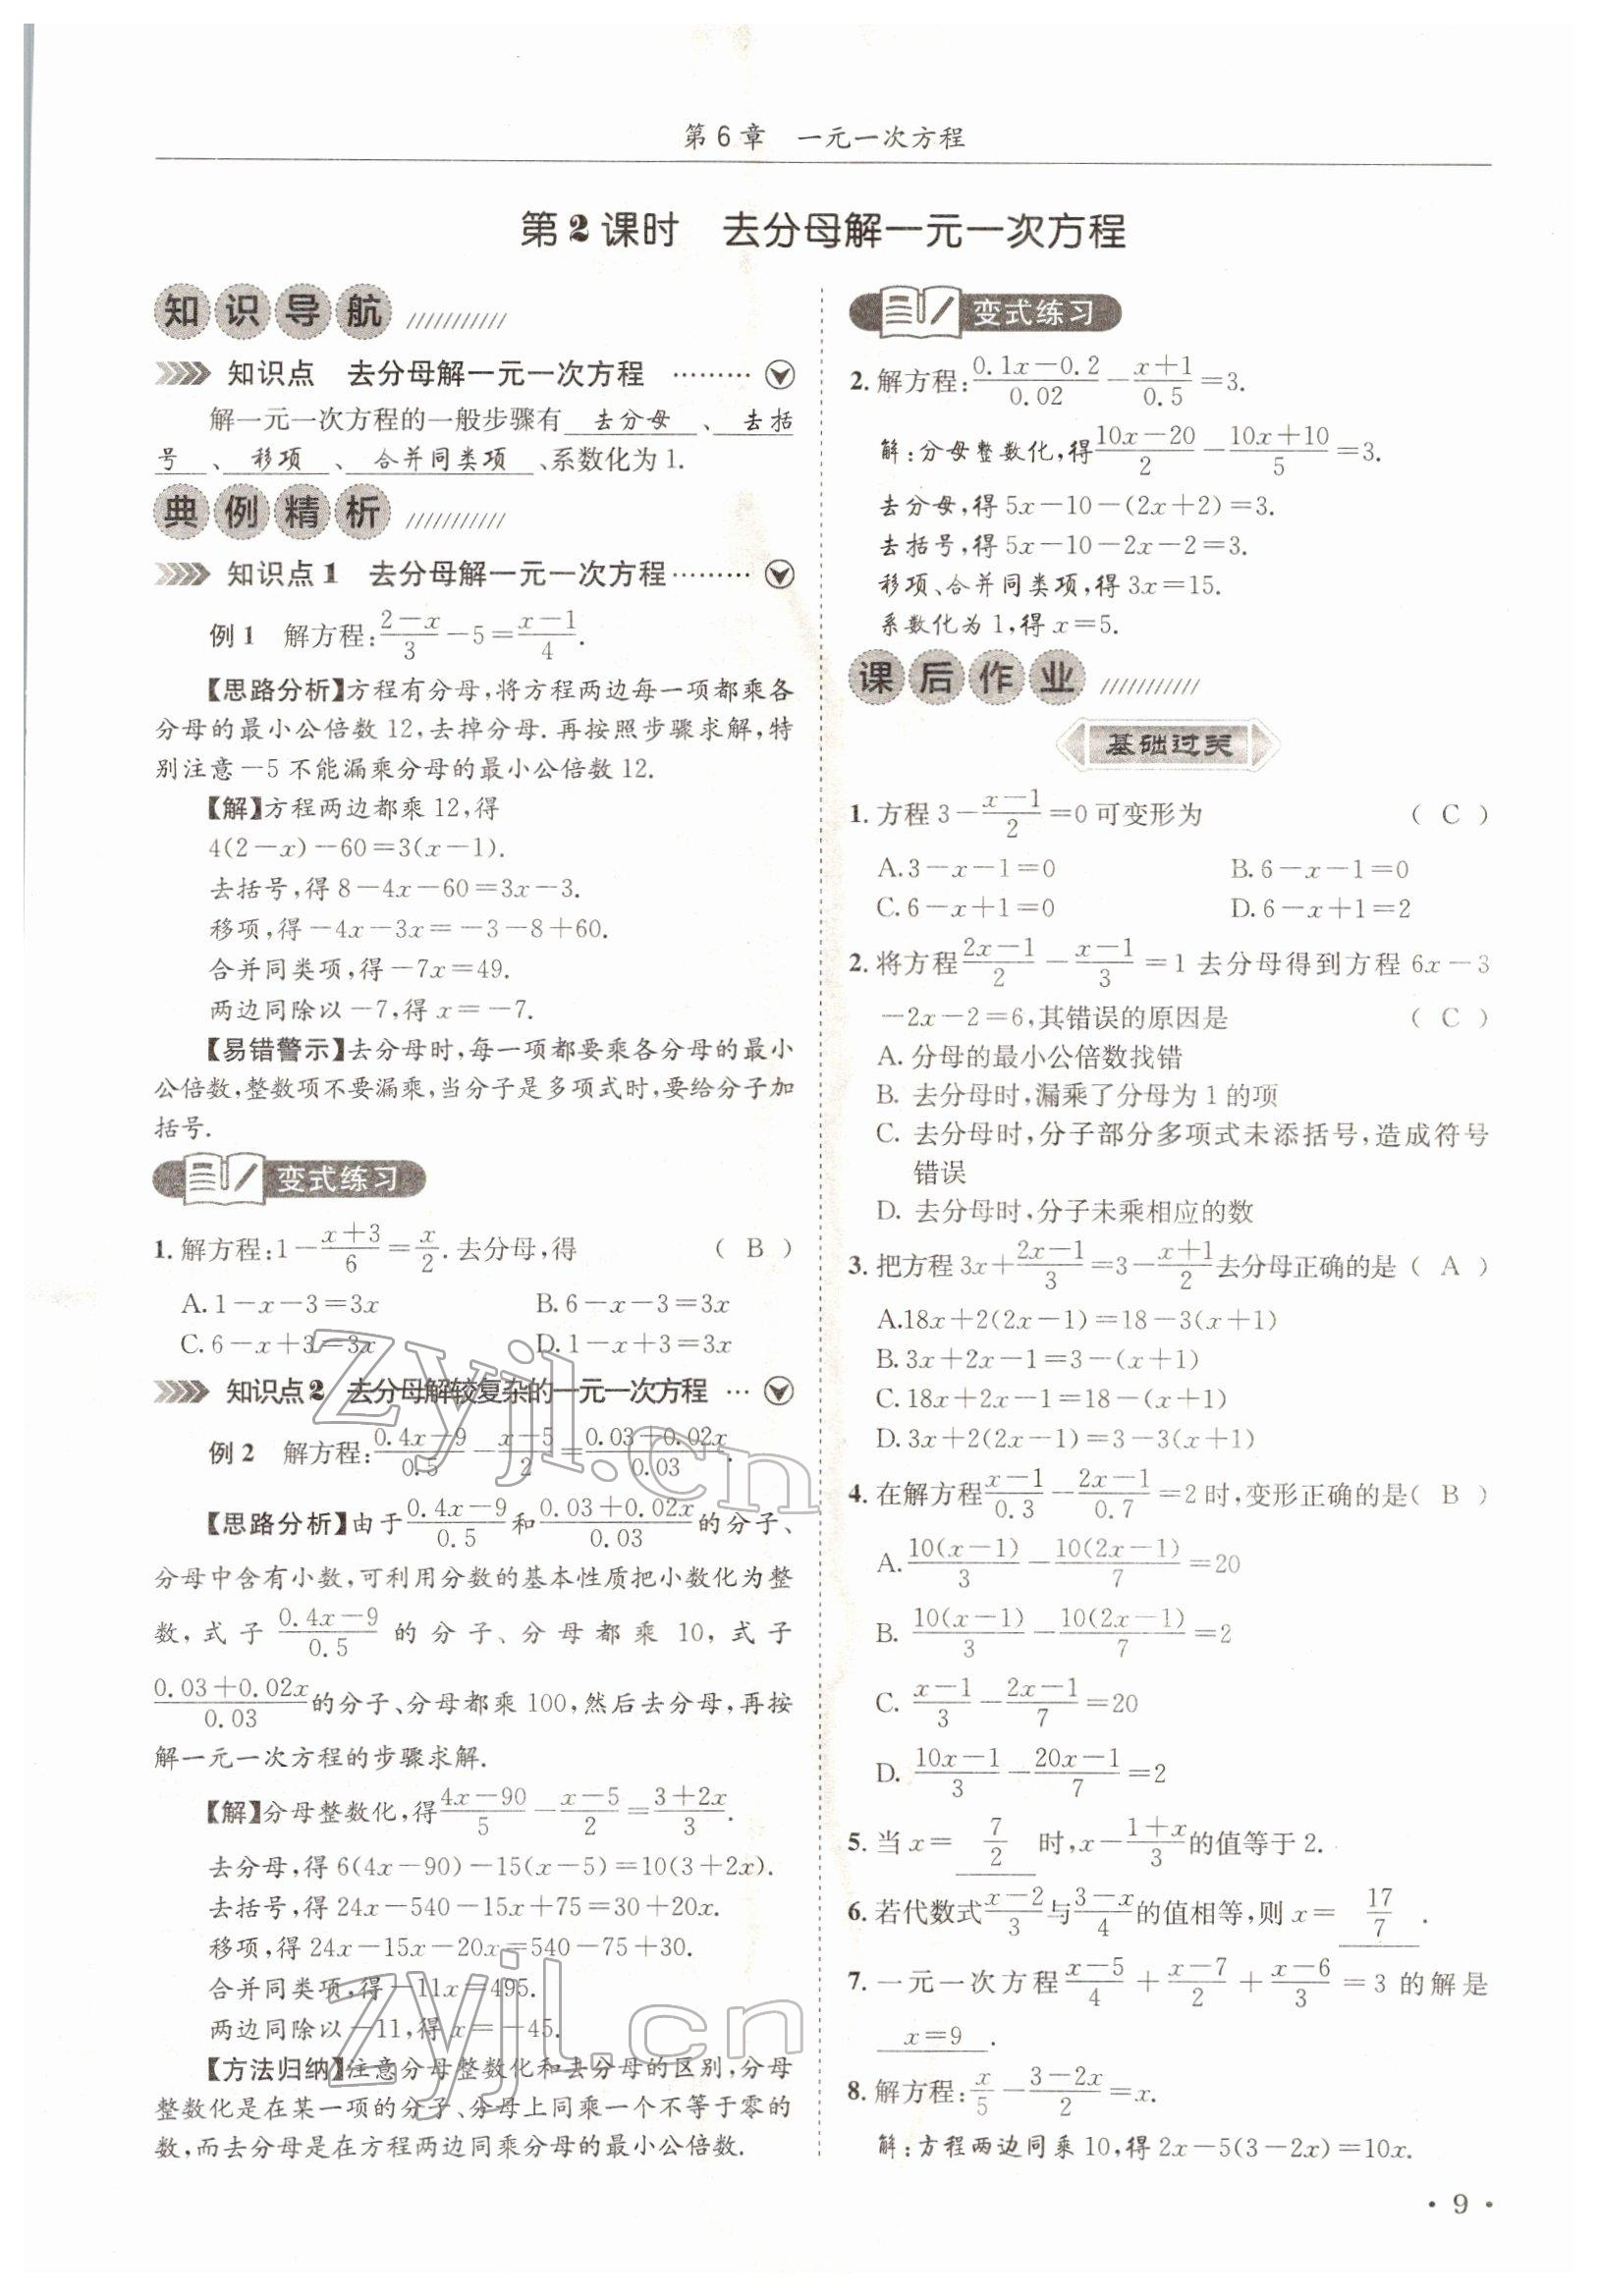 第6章　一元一次方程
第2课时　去分母解一元一次方程
知识导航
知识点　去分母解一元一次方程 ………
解一元一次方程的一般步骤有 去分母 、 去括
号 、 移项 、 合并同类项 、系数化为1.
典例精析
知识点1　去分母解一元一次方程………
例1　解方程:(2-x)/3-5=(x-1)/4.
【思路分析】方程有分母,将方程两边每一项都乘各
分母的最小公倍数12,去掉分母.再按照步骤求解,特
别注意-5不能漏乘分母的最小公倍数12.
【解】方程两边都乘12,得
4(2-x)-60=3(x-1).
去括号,得8-4x-60=3x-3.
移项,得-4x-3x=-3-8+60.
合并同类项,得-7x=49.
两边同除以-7,得x=-7.
【易错警示】去分母时,每一项都要乘各分母的最小
公倍数,整数项不要漏乘,当分子是多项式时,要给分子加
括号.
变式练习
1.解方程:1-(x+3)/6=x/2.去分母,得 ( B )
A.1-x-3=3x　B.6-x-3=3x
C.6-x+3=3x　D.1-x+3=3x
知识点2　去分母解较复杂的一元一次方程 …
例2　解方程:(0.4x-9)/0.5-(x-5)/2=(0.03+0.02x)/0.03.
【思路分析】由于(0.4x-9)/0.5和(0.03+0.02x)/0.03的分子、
分母中含有小数,可利用分数的基本性质把小数化为整
数,式子(0.4x-9)/0.5的分子、分母都乘10,式子
(0.03+0.02x)/0.03的分子、分母都乘100,然后去分母,再按
解一元一次方程的步骤求解.
【解】分母整数化,得(4x-90)/5-(x-5)/2=(3+2x)/3.
去分母,得6(4x-90)-15(x-5)=10(3+2x).
去括号,得24x-540-15x+75=30+20x.
移项,得24x-15x-20x=540-75+30.
合并同类项,得-11x=495.
两边同除以-11,得x=-45.
【方法归纳】注意分母整数化和去分母的区别,分母
整数化是在某一项的分子、分母上同乘一个不等于零的
数,而去分母是在方程两边同乘分母的最小公倍数.
变式练习
2.解方程:(0.1x-0.2)/0.02-(x+1)/0.5=3.
解:分母整数化,得(10x-20)/2-(10x+10)/5=3.
去分母,得5x-10-(2x+2)=3.
去括号,得5x-10-2x-2=3.
移项、合并同类项,得3x=15.
系数化为1,得x=5.
课后作业
基础过关
1.方程3-(x-1)/2=0可变形为 ( C )
A.3-x-1=0　B.6-x-1=0
C.6-x+1=0　D.6-x+1=2
2.将方程(2x-1)/2-(x-1)/3=1去分母得到方程6x-3
-2x-2=6,其错误的原因是 ( C )
A.分母的最小公倍数找错
B.去分母时,漏乘了分母为1的项
C.去分母时,分子部分多项式未添括号,造成符号
错误
D.去分母时,分子未乘相应的数
3.把方程3x+(2x-1)/3=3-(x+1)/2去分母正确的是( A )
A.18x+2(2x-1)=18-3(x+1)
B.3x+2x-1=3-(x+1)
C.18x+2x-1=18-(x+1)
D.3x+2(2x-1)=3-3(x+1)
4.在解方程(x-1)/0.3-(2x-1)/0.7=2时,变形正确的是( B )
A.10(x-1)/3-10(2x-1)/7=20
B.10(x-1)/3-10(2x-1)/7=2
C.(x-1)/3-(2x-1)/7=20
D.(10x-1)/3-(20x-1)/7=2
5.当x= 7/2 时,x-(1+x)/3的值等于2.
6.若代数式(x-2)/3与(3-x)/4的值相等,则x= 17/7 .
7.一元一次方程(x-5)/4+(x-7)/2+(x-6)/3=3的解是
x=9 .
8.解方程:x/5-(3-2x)/2=x.
解:方程两边同乘10,得2x-5(3-2x)=10x.
·9·
zyjl.cn
zyjl.cn